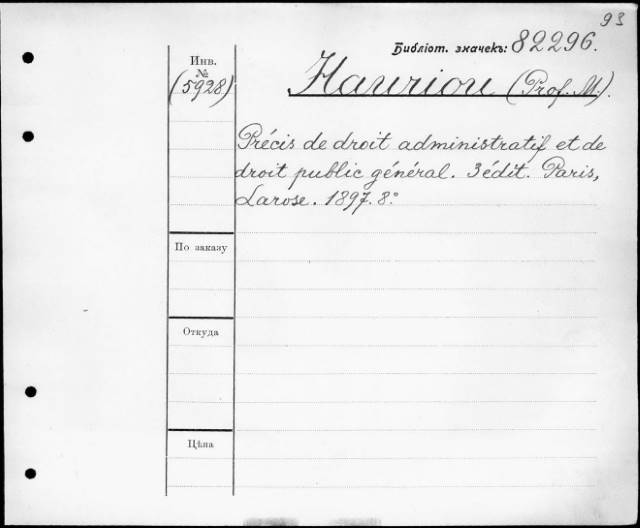 93
Библіот. значекъ: 82296.
Инв.
№
(5928)
Hauriou (Prof. M.).
Précis de droit administratif et de
droit public général. 3 édit. Paris,
Larose. 1897. 8.°
По заказу
Откуда
Цѣна